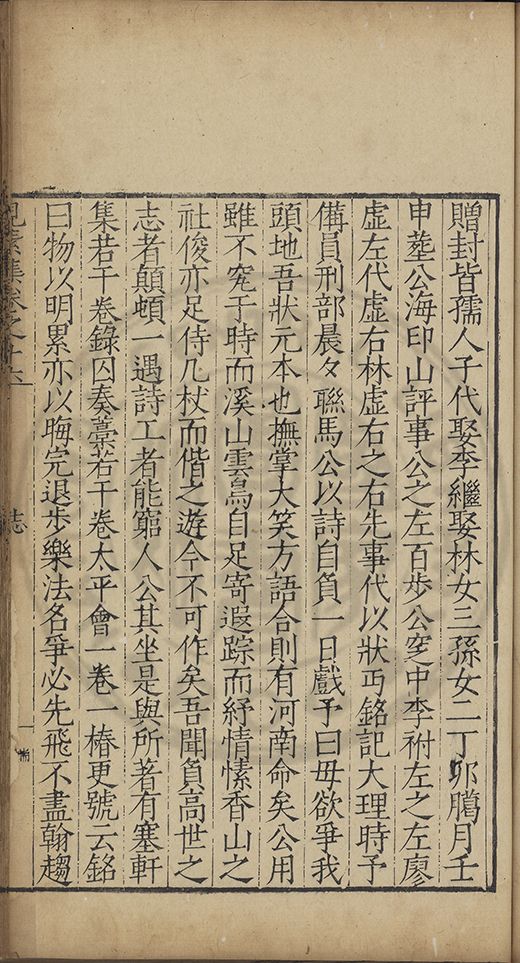 贈封皆孺人子代娶李繼娶林女三孫女二丁卯臈月壬
申塟公海印山評事公之左百步公窆中李祔左之左廖
虚左代虚右林虚右之右先事代以狀丐銘記大理時予
備員刑部晨夕聯馬公以詩自負一日戲予曰毋欲爭我
頭地吾狀元本也撫掌大笑方語合則有河南命矣公用
雖不究于時而溪山雲鳥自足寄遐踪而紓情愫香山之
社俊亦足侍几杖而偕之遊今不可作矣吾聞負高世之
志者顛頓一遇詩工者能窮人公其坐是與所著有塞軒
集若干卷錄囚奏藁若干卷太平會一卷一樁更號云銘
曰物以明累亦以晦完退步樂法名爭必先飛不盡翰趨
見素集卷之十六
志